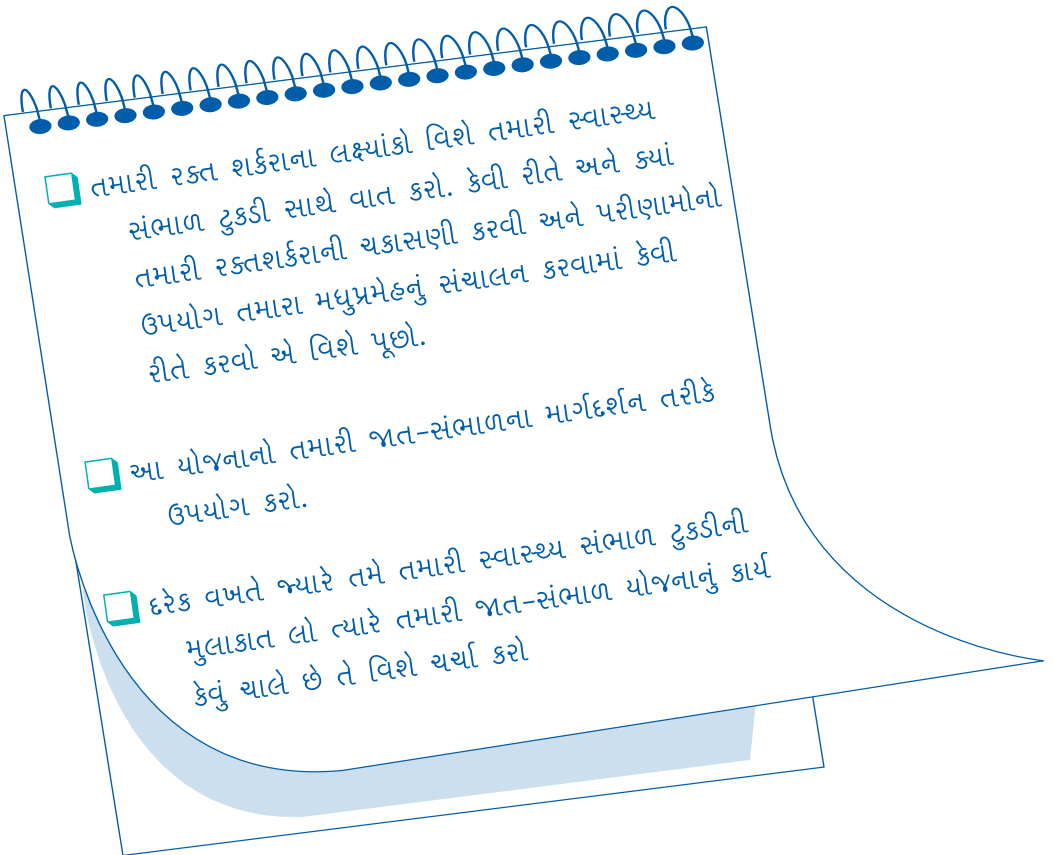 તમારી રક્ત શર્કરાના લક્ષ્યાંકો વિશે તમારી સ્વાસ્થ્ય
સંભાળ ટુકડી સાથે વાત કરો. કેવી રીતે અને ક્યાં
તમારી રક્તશર્કરાની ચકાસણી કરવી અને પરીણામોનો
ઉપયોગ તમારા મધુપ્રમેહનું સંચાલન કરવામાં કેવી
રીતે કરવો એ વિશે પૂછો.
આ યોજનાનો તમારી જાત-સંભાળના માર્ગદર્શન તરીકે
ઉપયોગ કરો.
દરેક વખતે જ્યારે તમે તમારી સ્વાસ્થ્ય સંભાળ ટુકડીની
મુલાકાત લો ત્યારે તમારી જાત-સંભાળ યોજનાનું કાર્ય
કેવું ચાલે છે તે વિશે ચર્ચા કરો